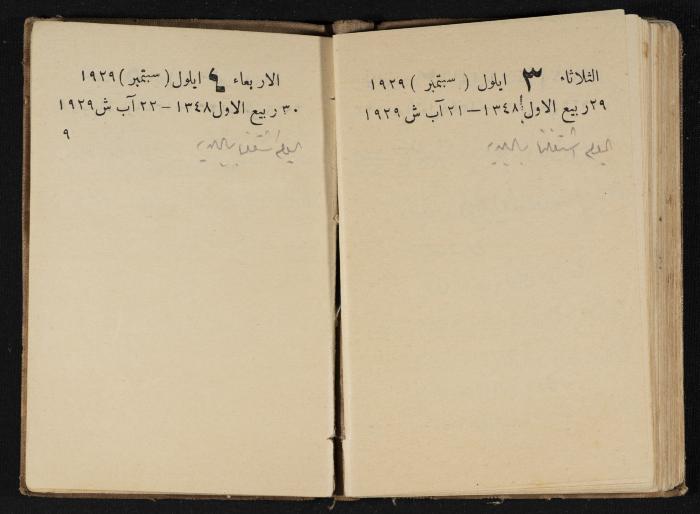 الثلاثاء ٣ ايلول ( سبتمبر ) ١٩٢٩
٢٩ ربيع الاول ١٣٤٨ — ٢١ آب ش ١٩٢٩
اليوم اشتغلنا
الاربعاء ٤ ايلول ( سبتمبر ) ١٩٢٩
٣٠ ربيع الاول ١٣٤٨ - ٢٢ آب ش ١٩٢٩
٩
اليوم اشتغلنا